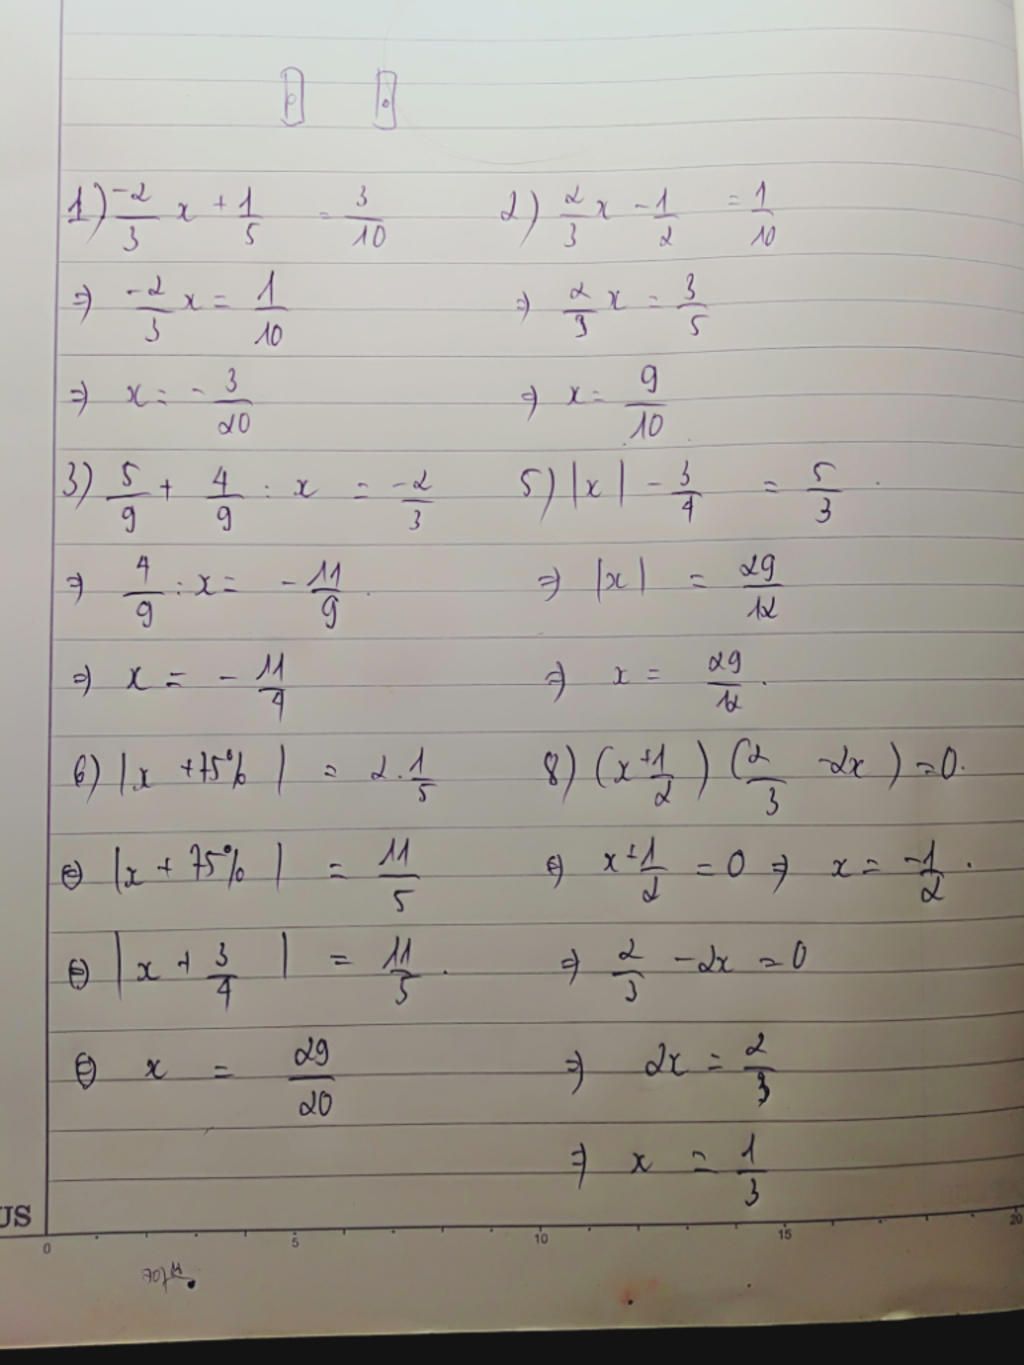 1) -2/3 x + 1/5 = 3/10
⇒ -2/3 x = 1/10
⇒ x = - 3/20
2) 2/3 x - 1/2 = 1/10
⇒ 2/3 x = 3/5
⇒ x = 9/10
3) 5/9 + 4/9 : x = -2/3
⇒ 4/9 : x = - 11/9
⇒ x = - 11/4
5) |x| - 3/4 = 5/3
⇒ |x| = 29/12
⇒ x = 29/12
6) |x + 75%| = 2.1/5
⇔ |x + 75%| = 11/5
⇔ |x + 3/4| = 11/5
⇔ x = 29/20
8) (x + 1/2) (2/3 - 2x) = 0.
⇔ x + 1/2 = 0 ⇒ x = -1/2.
⇒ 2/3 - 2x = 0
⇒ 2x = 2/3
⇒ x = 1/3
US
0 5 10 15 20